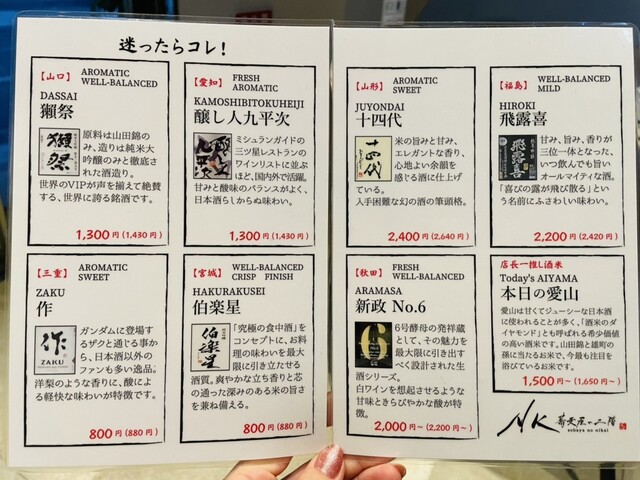 迷ったらコレ!
【山口】 AROMATIC
WELL-BALANCED
DASSAI
獺祭
獺祭
原料は山田錦の
み、造りは純米大
吟醸のみと徹底さ
れた酒造り。
世界のVIPが声を揃えて絶賛
する、世界に誇る銘酒です。
1,300円(1,430円)
【愛知】 FRESH
AROMATIC
KAMOSHIBITOKUHEIJI
醸し人九平次
ミシュランガイドの
三ツ星レストランの
ワインリストに並ぶ
ほど、国内外で活躍。
甘みと酸味のバランスがよく、
日本酒らしからぬ味わい。
1,300円(1,430円)
【三重】 AROMATIC
SWEET
ZAKU
作
作
ZAKU
ガンダムに登場す
るザクと通じる事か
ら、日本酒以外の
ファンも多い逸品。
洋梨のような香りに、酸によ
る軽快な味わいが特徴です。
800円(880円)
【宮城】 WELL-BALANCED
CRISP FINISH
HAKURAKUSEI
伯楽星
伯楽星
「究極の食中酒」を
コンセプトに、お料
理の味わいを最大
限に引き立てる
酒質。爽やかな立ち香りと芯
の通った深みのある米の旨さ
を兼ね備える。
800円(880円)
【山形】 AROMATIC
SWEET
JUYONDAI
十四代
十四代
米の旨みと甘み、
エレガントな香り、
心地よい余韻を
感じる酒に仕上げ
ている。
入手困難な幻の酒の筆頭格。
2,400円(2,640円)
【福島】 WELL-BALANCED
MILD
HIROKI
飛露喜
飛露喜
甘み、旨み、香りが
三位一体となった、
いつ飲んでも旨い
オールマイティな酒。
「喜びの露が飛び散る」とい
う名前にふさわしい味わい。
2,200円(2,420円)
【秋田】 FRESH
WELL-BALANCED
ARAMASA
新政 No.6
6
6号酵母の発祥蔵
として、その魅力を
最大限に引き出す
べく設計された生
酒シリーズ。
白ワインを想起させるような
甘味ときらびやかな酸が特
徴。
2,000円～(2,200円～)
店長一推し酒米
Today's AIYAMA
本日の愛山
愛山は甘くてジューシーな日本酒
に使われることが多く、「酒米のダ
イヤモンド」とも呼ばれる希少価値
の高い酒米です。山田錦と雄町の
孫に当たるお米で、今最も注目を
浴びているお米です。
1,500円～(1,650円～)
NK 蕎麦屋の二階
sobaya no nikai